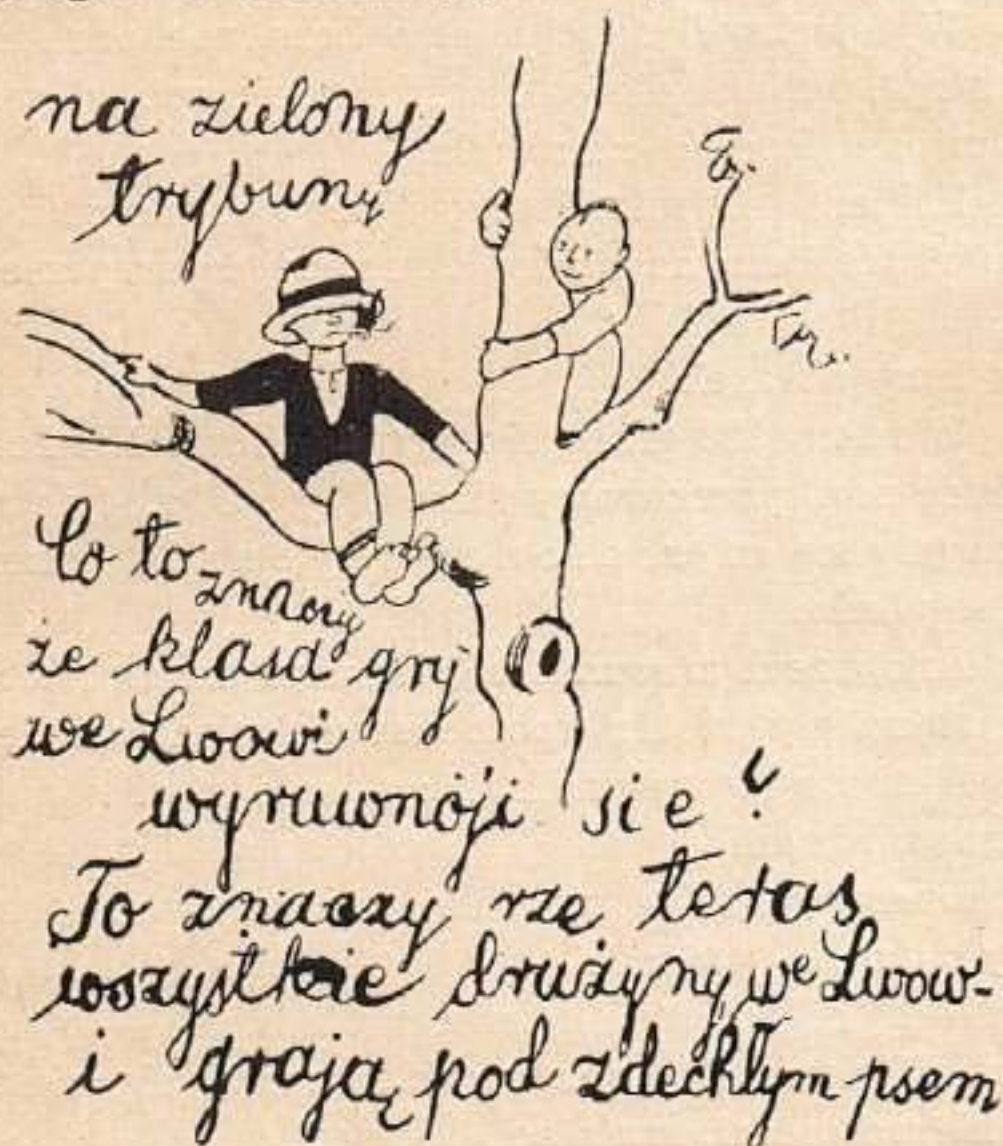 na zielony
trybunę
Co to znaczy
że klasa gry
we Lwowi
wyruwnóji sie?
To znaczy rze teras
wszystkie drużyny we Lwow-
i grają pod zdechłym psem